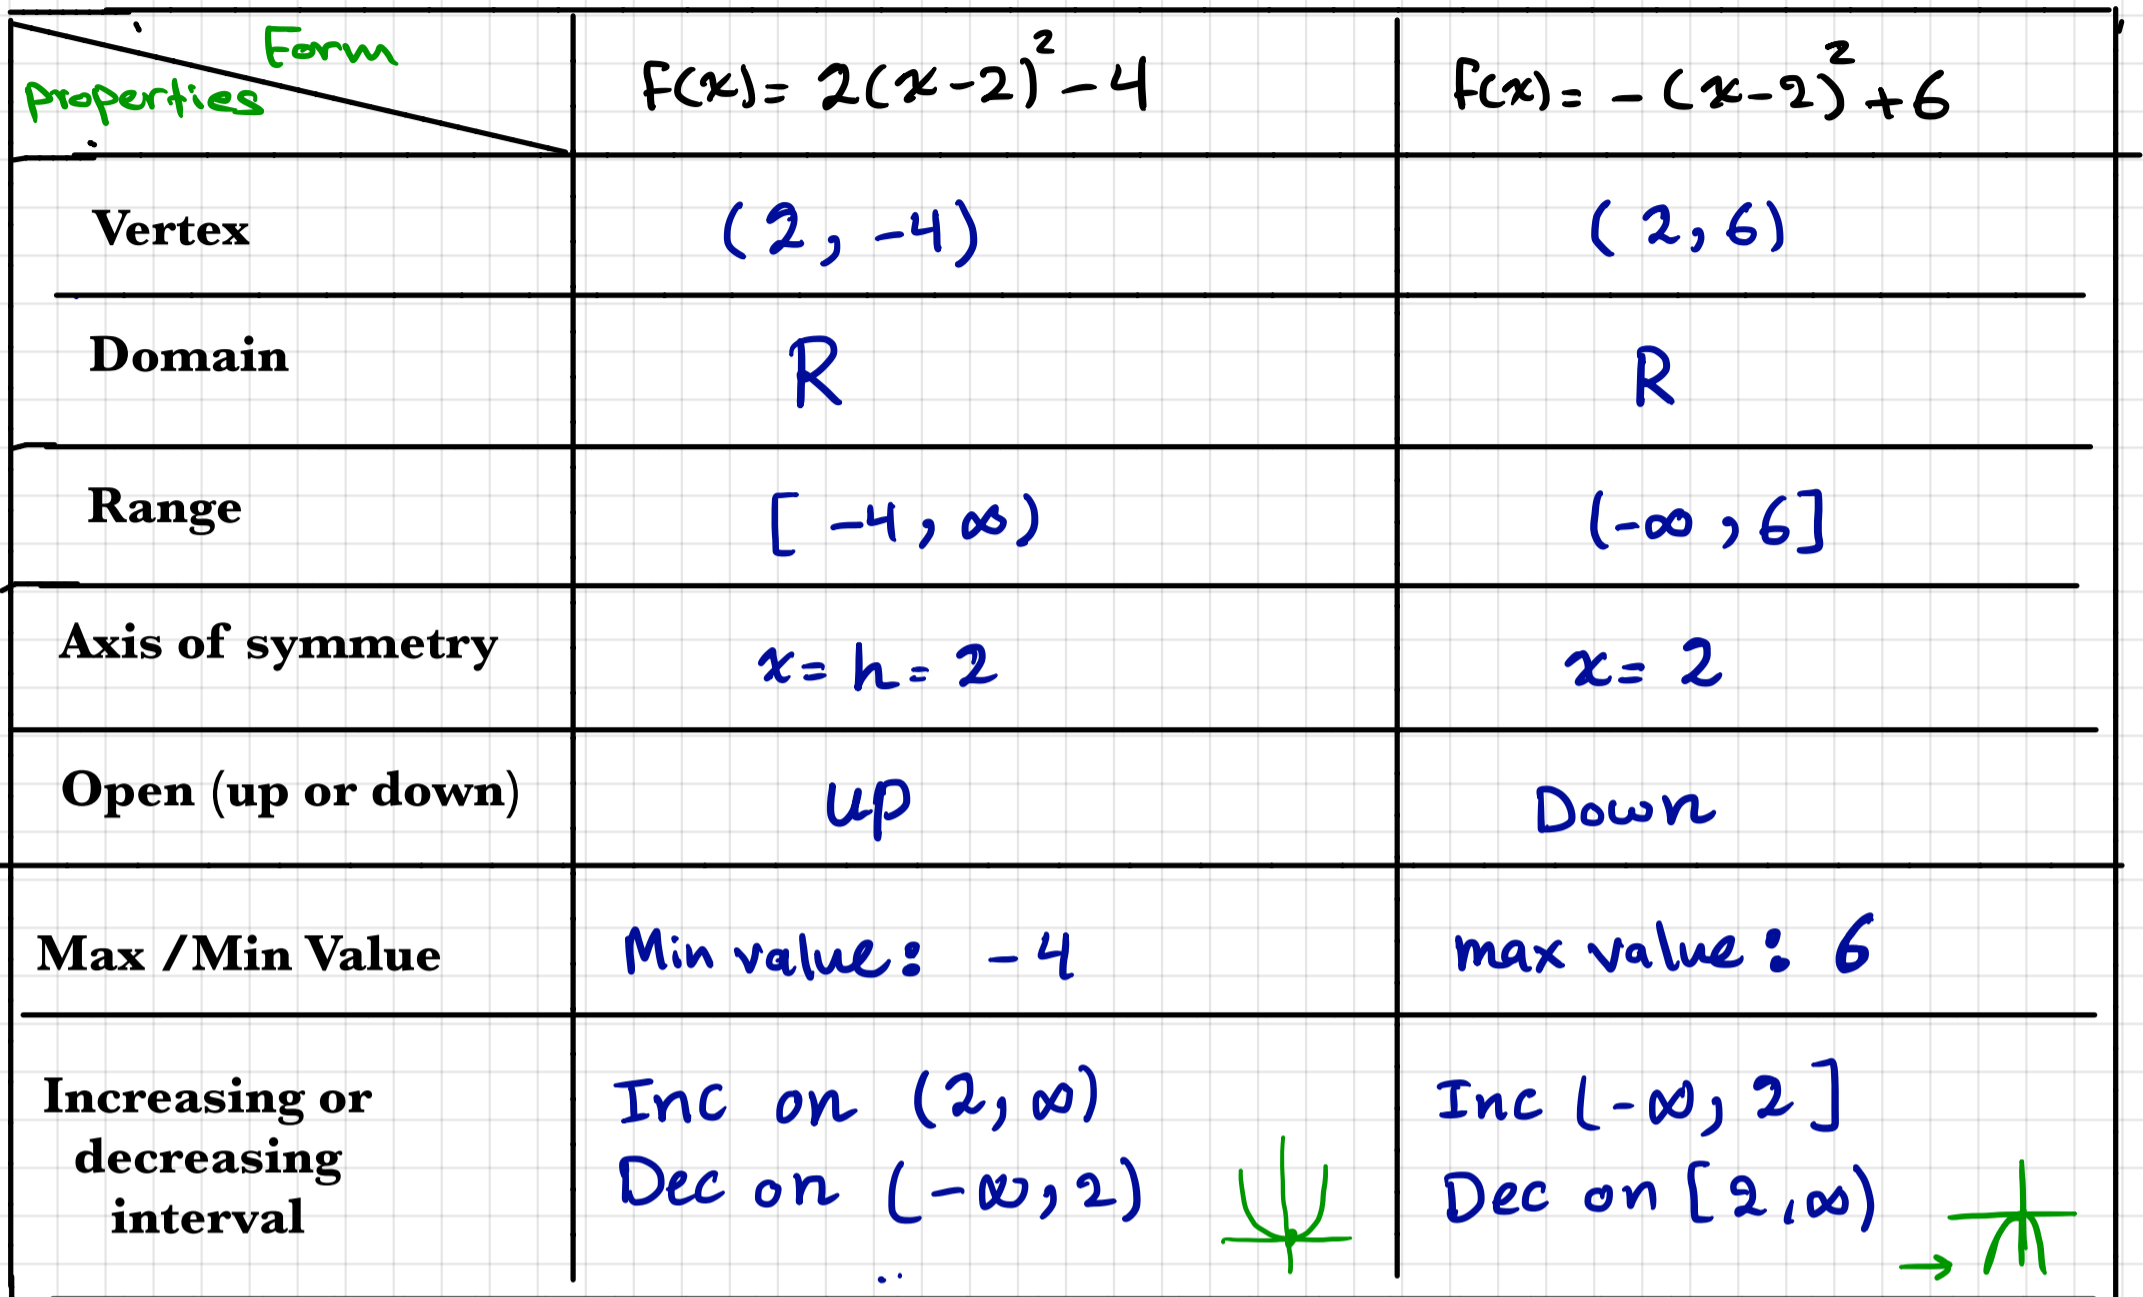 Form
properties
f(x)= 2(x-2)² -4
f(x)= -(x-2)² +6
Vertex
(2, -4)
(2, 6)
Domain
R
R
Range
[-4, ∞)
(-∞, 6]
Axis of symmetry
x= h= 2
x= 2
Open (up or down)
up
Down
Max /Min Value
Min value: -4
max value: 6
Increasing or
decreasing
interval
Inc on (2, ∞)
Dec on (-∞, 2)
Inc (-∞, 2]
Dec on [2, ∞)